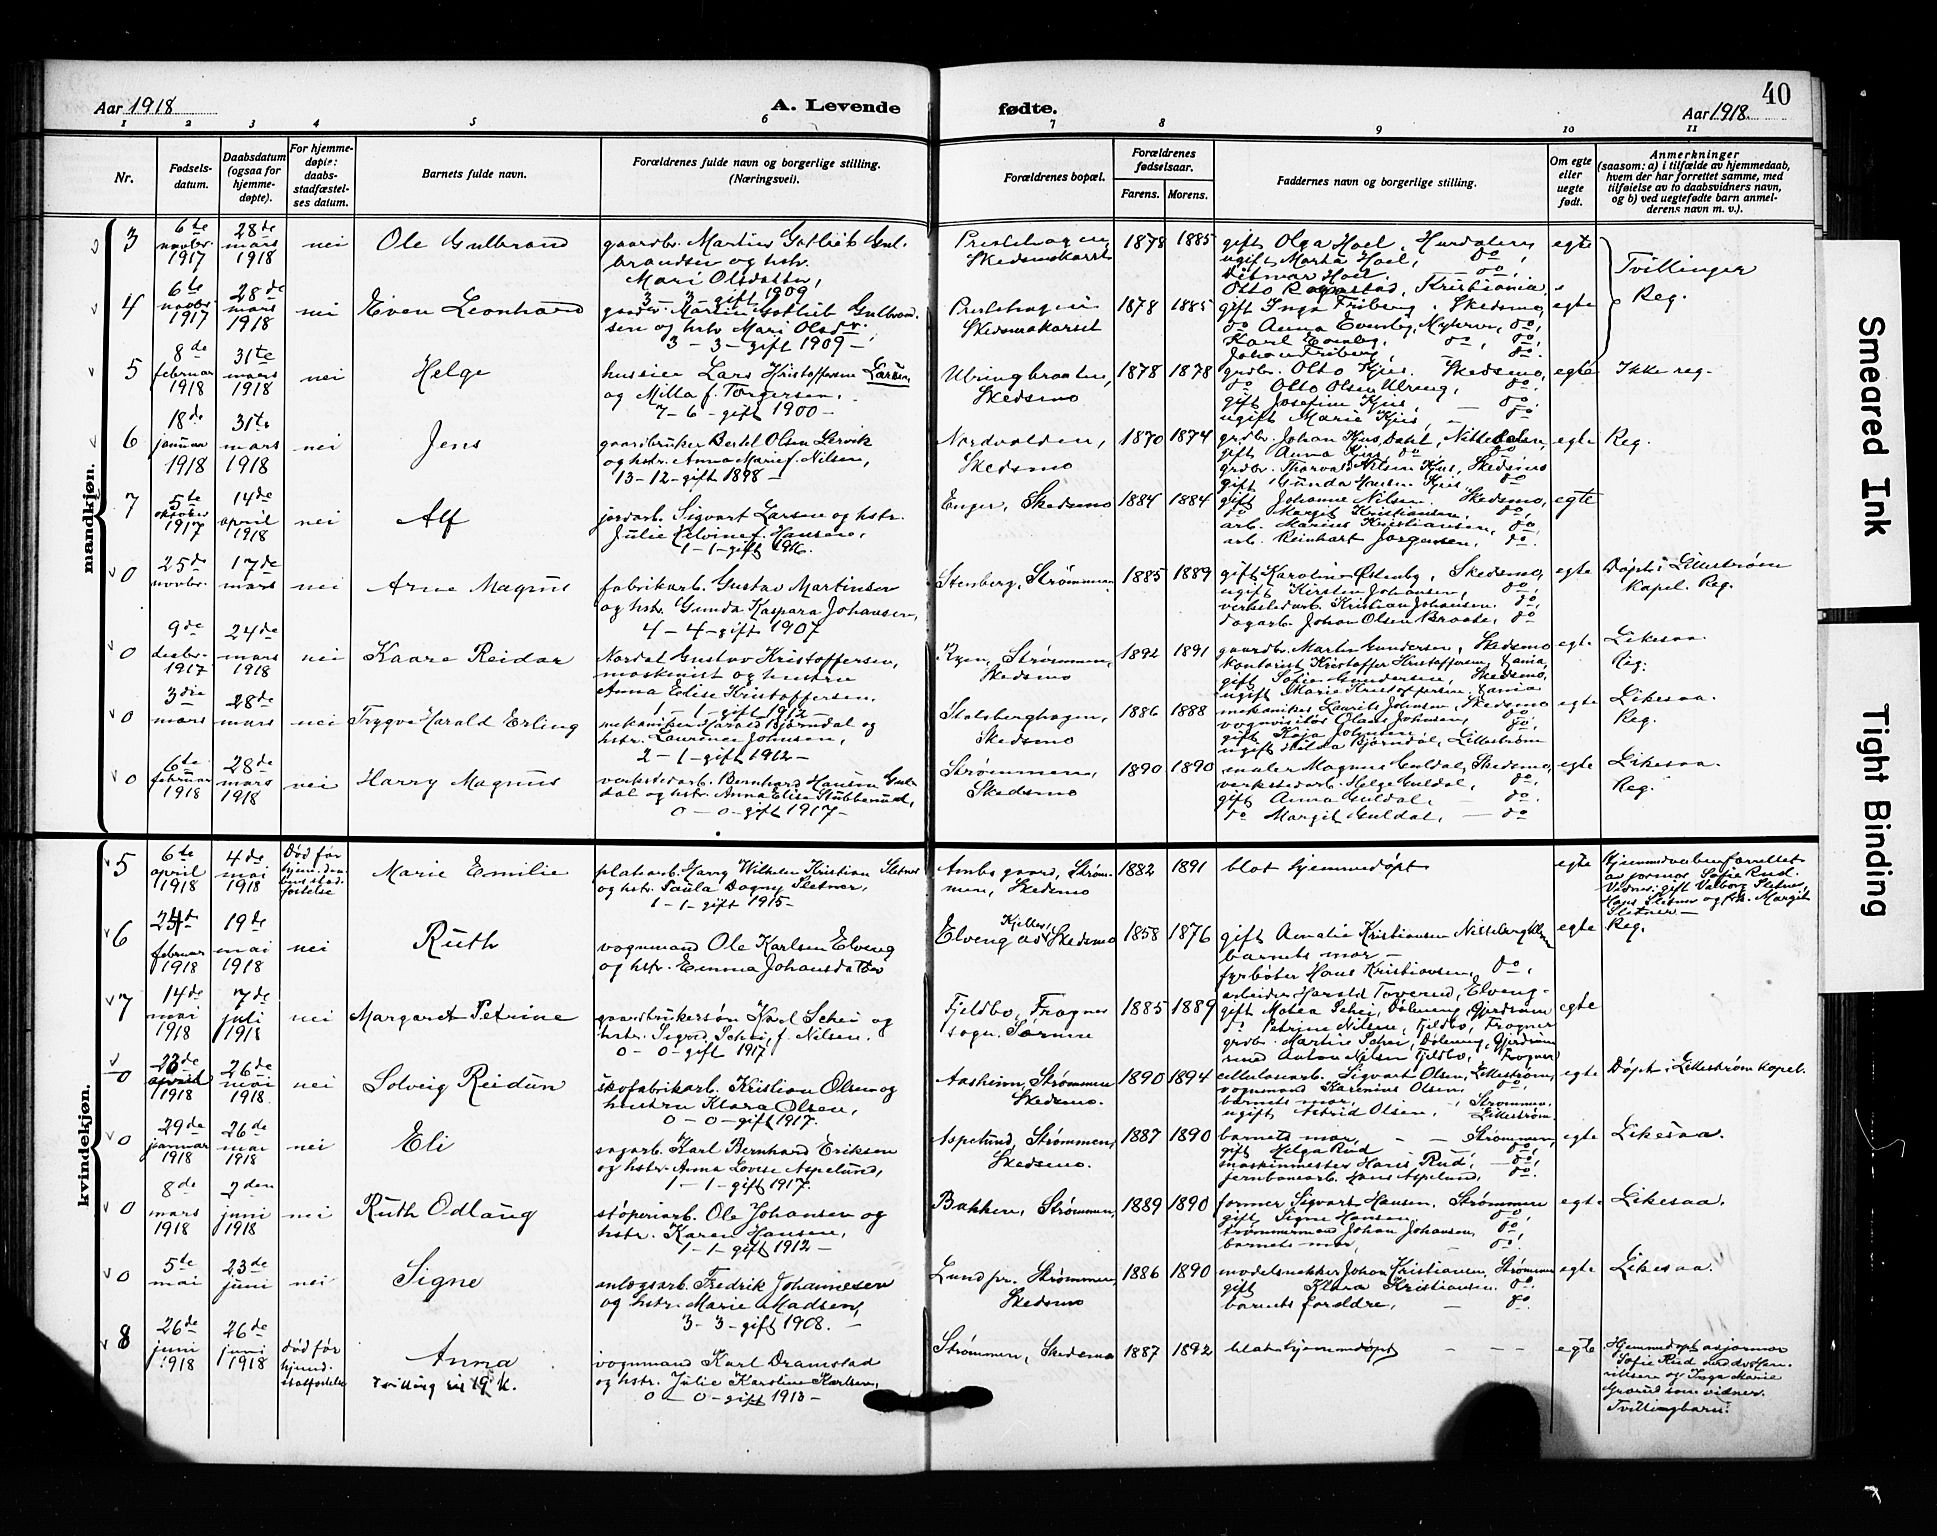 Aar 1918
A. Levende
fødte.
Aar 1918.
40
1 2 3 4 5 6 7 8 9 10 11
Nr.
Fødsels-
datum.
Daabsdatum
(ogsaa for
hjemme-
døpte).
For hjemme-
døpte:
daabs-
stadfæstel-
ses datum.
Barnets fulde navn.
Forældrenes fulde navn og borgerlige stilling.
(Næringsvei).
Forældrenes bopæl.
Forældrenes
fødselsaar.
Farens. Morens.
Faddernes navn og borgerlige stilling.
Om egte
eller
uegte
født.
Anmerkninger
(saasom: a) i tilfælde av hjemmedaab,
hvem der har forrettet samme, med
tilføielse av to daabsvidners navn,
og b) ved uegtefødte barn anmel-
derens navn m. v.).
mandkjøn.
3
6te
novbr.
1917
28de
mars
1918
nei
Ole Gulbrand
gaardbr. Martin Gotlieb Gul-
brandsen og hstr.
Mari Olsdatter,
3 - 3 - gift 1909
Prestehagen,
Skedsmokorset
1878 1885
gift Olga Hoel, Hurdalen,
ugift Marta Hoel, do,
Ditmar Hoel, do,
Otto Ragnstad, Kristiania.
egte
Tvillinger
Reg.
4
6te
novbr.
1917
28de
mars
1918
nei
Even Leonhard
gaardbr. Martin Gotlieb Gulbrand-
sen og hstr Mari Olsdr.
3 - 3 - gift 1909 -
Prestehagen
Skedsmokorset
1878 1885
gift Inga Friberg, Skedsmo,
do Anna Evenby, Myhrer, do,
Karl Evenby, do, do,
Johan Friberg, - do.
egte
5
8de
februar
1918
31te
mars
1918
nei
Helge
huseier Lars Kristoffersen Larsen,
og Milla f. Torgersen,
7 - 6 - gift 1900 -
Skedsmo
1878 1878
grdbr. Otto Kjus, Skedsmo,
do Otto Olsen Ulreng, do.
gift Josefine Kjus, - do
ugift Marie Kjus, - do
egte
Ikke reg.
6
18de
januar
1918
31te
mars
1918
nei
Jens
gaardbruker Bertel Olsen Lervik
og hstr. Anna Marie f. Nilsen,
13 - 12 - gift 1898 -
Nordvolden,
Skedsmo
1870 1874
grdbr. Johan Kjus, Dahl, Nittedalen,
gift Anna Kjus, do do,
grdbr. Thorvald Nilsen Kjus, Skedsmo
gift Gunda Hansen Kjus, do
egte
Reg.
7
5te
oktober
1917
14de
april
1918
nei
Alf
jordarb. Sigvart Larsen og hstr.
Julie Elvine f. Hansen,
1 - 1 - gift 1916.
Enger, Skedsmo
1884 1884
gift Johanne Nilsen, Skedsmo,
do Margit Kristiansen, do,
arb. Marius Kristiansen, do,
arb. Reinhart Jørgensen, do.
egte
0
25de
novbr.
17de
mars
nei
Arne Magnus
fabrikarb. Gustav Martinsen
og hstr. Gunda Kaspara Johansen,
4 - 4 - gift 1907
Stenberg, Strømmen
1885 1889
gift Karoline Østenby, Skedsmo,
ugift Kirsten Johansen, do,
verkstedarb. Kristian Johansen. do,
dagarb. Johan Olsen Braate, do
egte
Døpt i Lillestrøm
Kapel. Reg.
0
9de
desbr.
1917
24de
mars
1918
nei
Kaare Reidar
Nordal Gustav Kristoffersen,
maskinist og hustru
Anna Elise Kristoffersen.
1 - 1 - gift 1912 -
Ryen, Strømmen,
Skedsmo
1892 1891
gaardbr. Martin Gundersen, Skedsmo
kontorist Kristoffer Kristoffersen, Krania,
gift Sofie Gundersen, Skedsmo,
ugift Marie Kristoffersen, Krania
egte
Likesaa.
Reg.
0
3die
mars
28de
mars
nei
Trygve Harald Erling
mekaniker Harald Bjørndal og
hstr. Laurence Johnsen,
2 - 1 - gift 1912 -
Stalsberghagen,
Skedsmo
1886 1888
mekaniker Laurits Johnsen, Skedsmo
vognvisitør Olaus Johnsen, do,
gift Kaja Johnsen, do,
ugift Hilda Bjørndal, Lillestrøm
egte
Likesaa.
Reg.
0
6te
februar
1918
28de
mars
1918
nei
Harry Magnus
verkstedarb. Bernhard Hansen Gul-
dal og hstr. Anna Elise Stubberud,
0 - 0 - gift 1917 -
Strømmen,
Skedsmo
1890 1890
maler Magnus Guldal, Skedsmo,
verkstedarb. Helge Guldal, do
gift Anna Guldal, - do
do Margit Guldal, - do
egte
Likesaa.
Reg.
kvindekjøn.
5
6te
april
1918
4de
mai
1918
Død før
hjem. daa-
bens stad-
fæstelse
Marie Emilie
platearb. Harry Wilhelm Kristian Sletner
og hstr. Paula Dagny Sletner,
1 - 1 - gift 1915 -
Ambs gaard, Strøm-
men, Skedsmo
1882 1891
blot hjemmedøpt
egte
Hjemmedaaben forrettet
av jormor Sofie Rud.
Vidner: gift Valborg Sletner,
Hans Sletner og frk. Margit
Sletner -
6
24de
februar
1918
19de
mai
1918
nei
Ruth
vognmand Ole Karlsen Elveng
og hstr. Emma Johansdatter
Elveng av Kjeller, Skedsmo
1858 1876
gift Amalie Kristiansen Nitteberg
barnets mor -
fyrbøter Hans Kristiansen, do,
arbeider Harald Toverud, Elveng -
egte
Reg.
7
14de
mai
1918
7de
juli
1918
nei
Margaret Petrine
gaardbrukersøn Karl Schei og
hstr. Sigrid Schei, f. Nilsen.
0 - 0 - gift 1917
Fjeldbo, Frogner
sogn, Sørum
1885 1889
gift Matea Schei, Døleneng, Gjerdrum
do Petrine Nilsen, Fjeldbo, Frogner
grdbr. Martin Schei, Døleneng, Gjerdrum
Anton Nilsen Fjeldbo, Frogner
egte
0
23de
april
1918
26de
mai
1918.
nei
Solveig Reidun
skofabrikarb. Kristian Olsen og
hustru Klara Olsen,
0 - 0 - gift 1917.
Aasheim, Strømmen
Skedsmo.
1890 1894
cellulosearb. Sigvart Olsen, Lillestrøm,
vognmand Karenius Olsen, do,
barnets mor, Strømmen.
ugift Astrid Olsen, Lillestrøm.
egte
Døpt i Lillestrøm kapel.
0
29de
januar
1918
26de
mai
1918
nei
Eli
sagarb. Karl Bernhard Eriksen
og hstr. Anna Lovise Aspelund,
1 - 1 - gift 1917.
Aspelund, Strømmen,
Skedsmo.
1887 1890
barnets mor, - - Strømmen,
gift Helga Rud do,
maskinmester Hans Rud, - do,
jernbanearb. Hans Aspelund, do
egte
Likesaa.
0
8de
mars
1918
2den
juni
1918
nei
Ruth Odlaug
støperiarb. Ole Johansen og
hstr. Karen Hansen,
1 - 1 - gift 1912 -
Bakken, Strømmen,
1889 1890
former Sigvart Hansen, Strømmen
gift Signe Hansen do,
tømmermand Johan Johansen, do,
barnets mor, - do.
egte
Likesaa.
0
5te
mai
23de
juni
nei
Signe
anlægsarb. Fredrik Johannesen
og hstr. Marie Madsen,
3 - 3 - gift 1908. -
Lund pr. Strømmen,
Skedsmo
1886 1890
modelsnekker Johan Kristiansen, Strømmen
gift Klara Kristiansen do.
barnets forældre, - do.
egte
Likesaa.
8
26de
juni
1918
26de
juni
1918
død før
hjemd.
stadfæstelse
Anna
Tvilling
vognmand Karl Dramstad
og hstr. Julie Karoline Karlsen,
0 - 0 - gift 1913 -
Strømmen, Skedsmo
1887 1892
blot hjemmedøpt - - -
egte
Hjemmedøpt av jormor
Sofie Rud med
og Inga Marie
som vidner.
Tvillingbarn.
Smeared Ink
Tight Binding